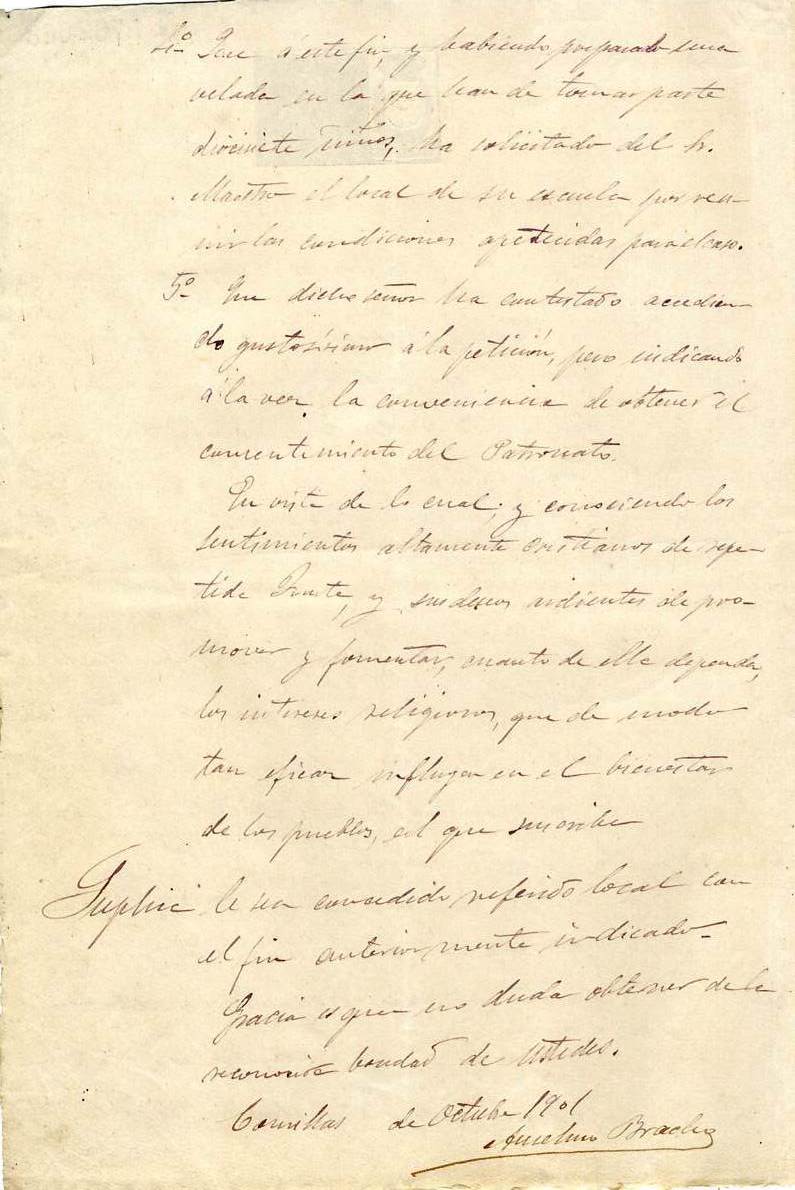 4º Que á este fin, y habiendo preparado una
velada en la que han de tomar parte
diecisiete niños, ha solicitado del Sr.
Maestro el local de su escuela por reu-
nir las condiciones apetecidas para el caso.
5º Que dicho señor ha contestado accedien-
do gustosísimo á la petición, pero indicando
á la vez, la conveniencia de obtener el
consentimiento del Patronato.
En vista de lo cual, y conociendo los
sentimientos altamente cristianos de repe-
tida Junta, y sus deseos ardientes de pro-
mover y fomentar, cuanto de ella dependa,
los intereses religiosos, que de modo
tan eficaz influyen en el bienestar
de los pueblos, el que suscribe
Suplica le sea concedido referido local con
el fin anteriormente indicado.
Gracia es que no duda obtener de la
reconocida bondad de Ustedes.
Comillas de Octubre 1901
Anselmo Bracho